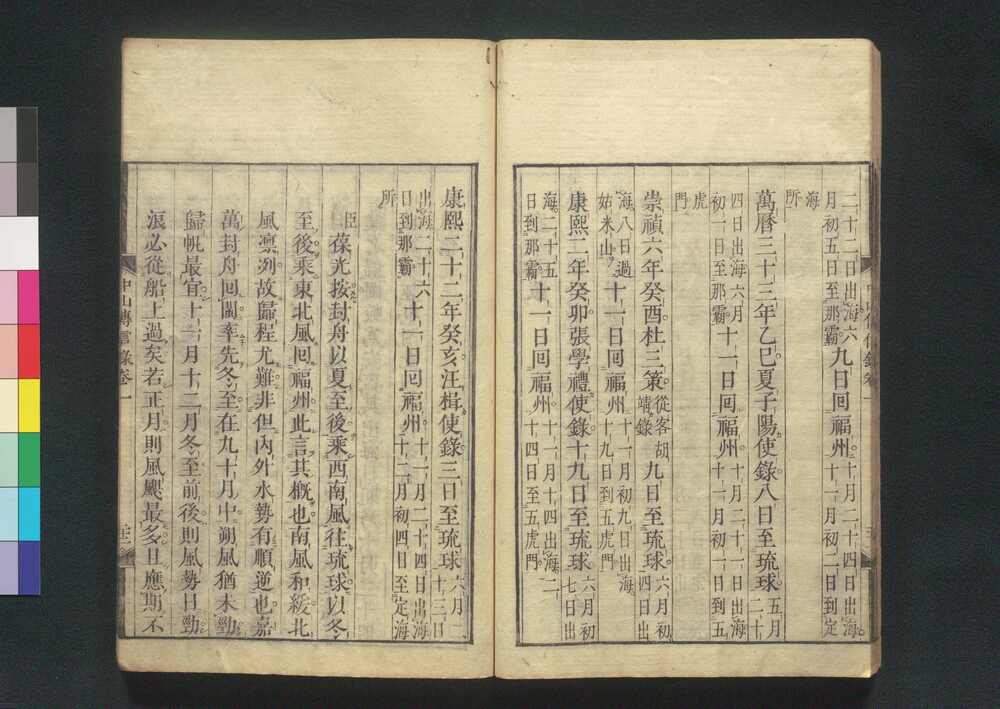 二十二日出海六
月初五日至那霸九日回福州十月二十四日出海
十一月初二日到定
海
所
萬曆三十三年乙巳夏子陽使錄八日至琉球五月
二十
四日出海六月
初一日至那霸十一日回福州十月二十一日出海
十一月初一日到五
虎
門
崇禎六年癸酉杜三策從客胡
靖錄九日至琉球六月初
四日出
海八日過
姑米山十一日回福州十一月初九日出海
十九日到五虎門
康熙二年癸卯張學禮使錄十九日至琉球六月初
七日出
海二十五
日到那霸十一日回福州十一月十四出海二
十四日至五虎門
康熙二十二年癸亥汪楫使錄三日至琉球六月二
十三日
出海二十六
日到那霸十一日回福州十一月二十四日出海
十二月初四日至定海
所
臣葆光按封舟以夏至後乘西南風往琉球以冬
至後乘東北風回福州此言其概也南風和緩北
風凛冽故歸程尤難非但內外水勢有順逆也嘉
萬封舟回閩率先冬至在九十月中朔風猶未勁
歸帆最宜十一月十二月冬至前後則風勢日勁
浪必從船上過矣若正月則風颶最多且應期不
中山傳信錄卷一